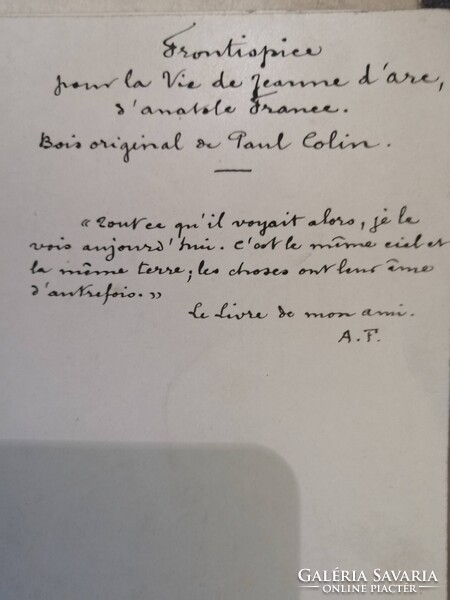 Frontispice
pour la Vie de Jeanne d'Arc,
d'anatole France.
Bois original de Paul Colin.
« Tout ce qu'il voyait alors, je le
vois aujourd'hui. C'est le même ciel et
la même terre; les choses ont leur âme
d'autrefois. »
Le Livre de mon ami.
A. F.
GALÉRIA SAVARIA
ONLINE PIACTÉR